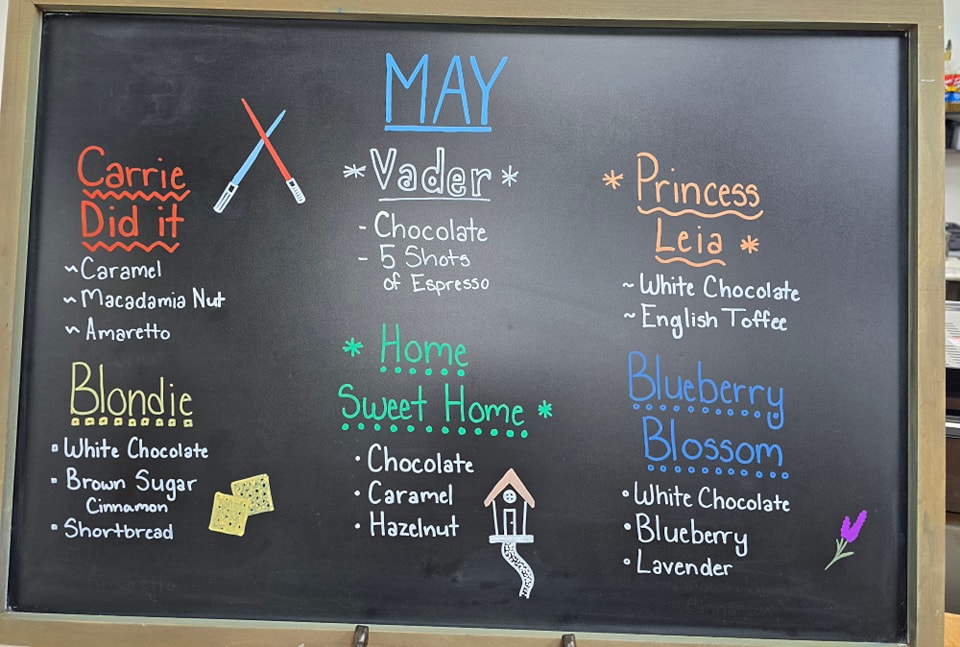 MAY
Carrie
Did it
~ Caramel
~ Macadamia Nut
~ Amaretto
* Vader *
- Chocolate
- 5 Shots
of Espresso
* Princess
Leia *
~ White Chocolate
~ English Toffee
Blondie
▪ White Chocolate
▪ Brown Sugar
Cinnamon
▪ Shortbread
* Home
Sweet Home *
• Chocolate
• Caramel
• Hazelnut
Blueberry
Blossom
• White Chocolate
• Blueberry
• Lavender